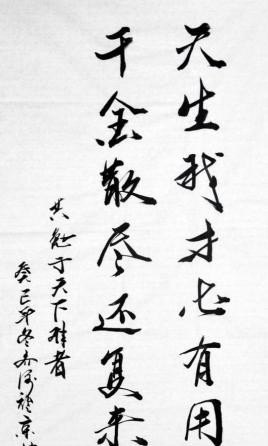 天生我才必有用
千金散尽还复来
共勉于天下
癸巳年冬